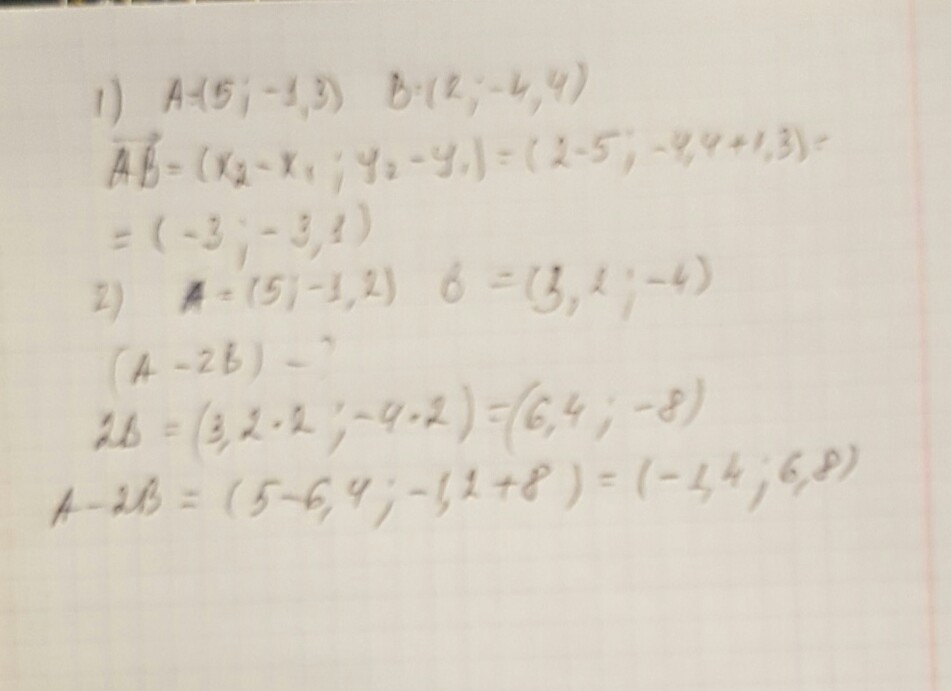 1) A=(5; -1,3) B=(2; -4,4)
AB = (x₂ - x₁ ; y₂ - y₁) = (2-5 ; -4,4+1,3) =
= (-3 ; -3,1)
2) A = (5; -1,2) B = (3,2 ; -4)
(A - 2B) - ?
2B = (3,2·2 ; -4·2) = (6,4 ; -8)
A - 2B = (5-6,4 ; -1,2+8) = (-1,4 ; 6,8)